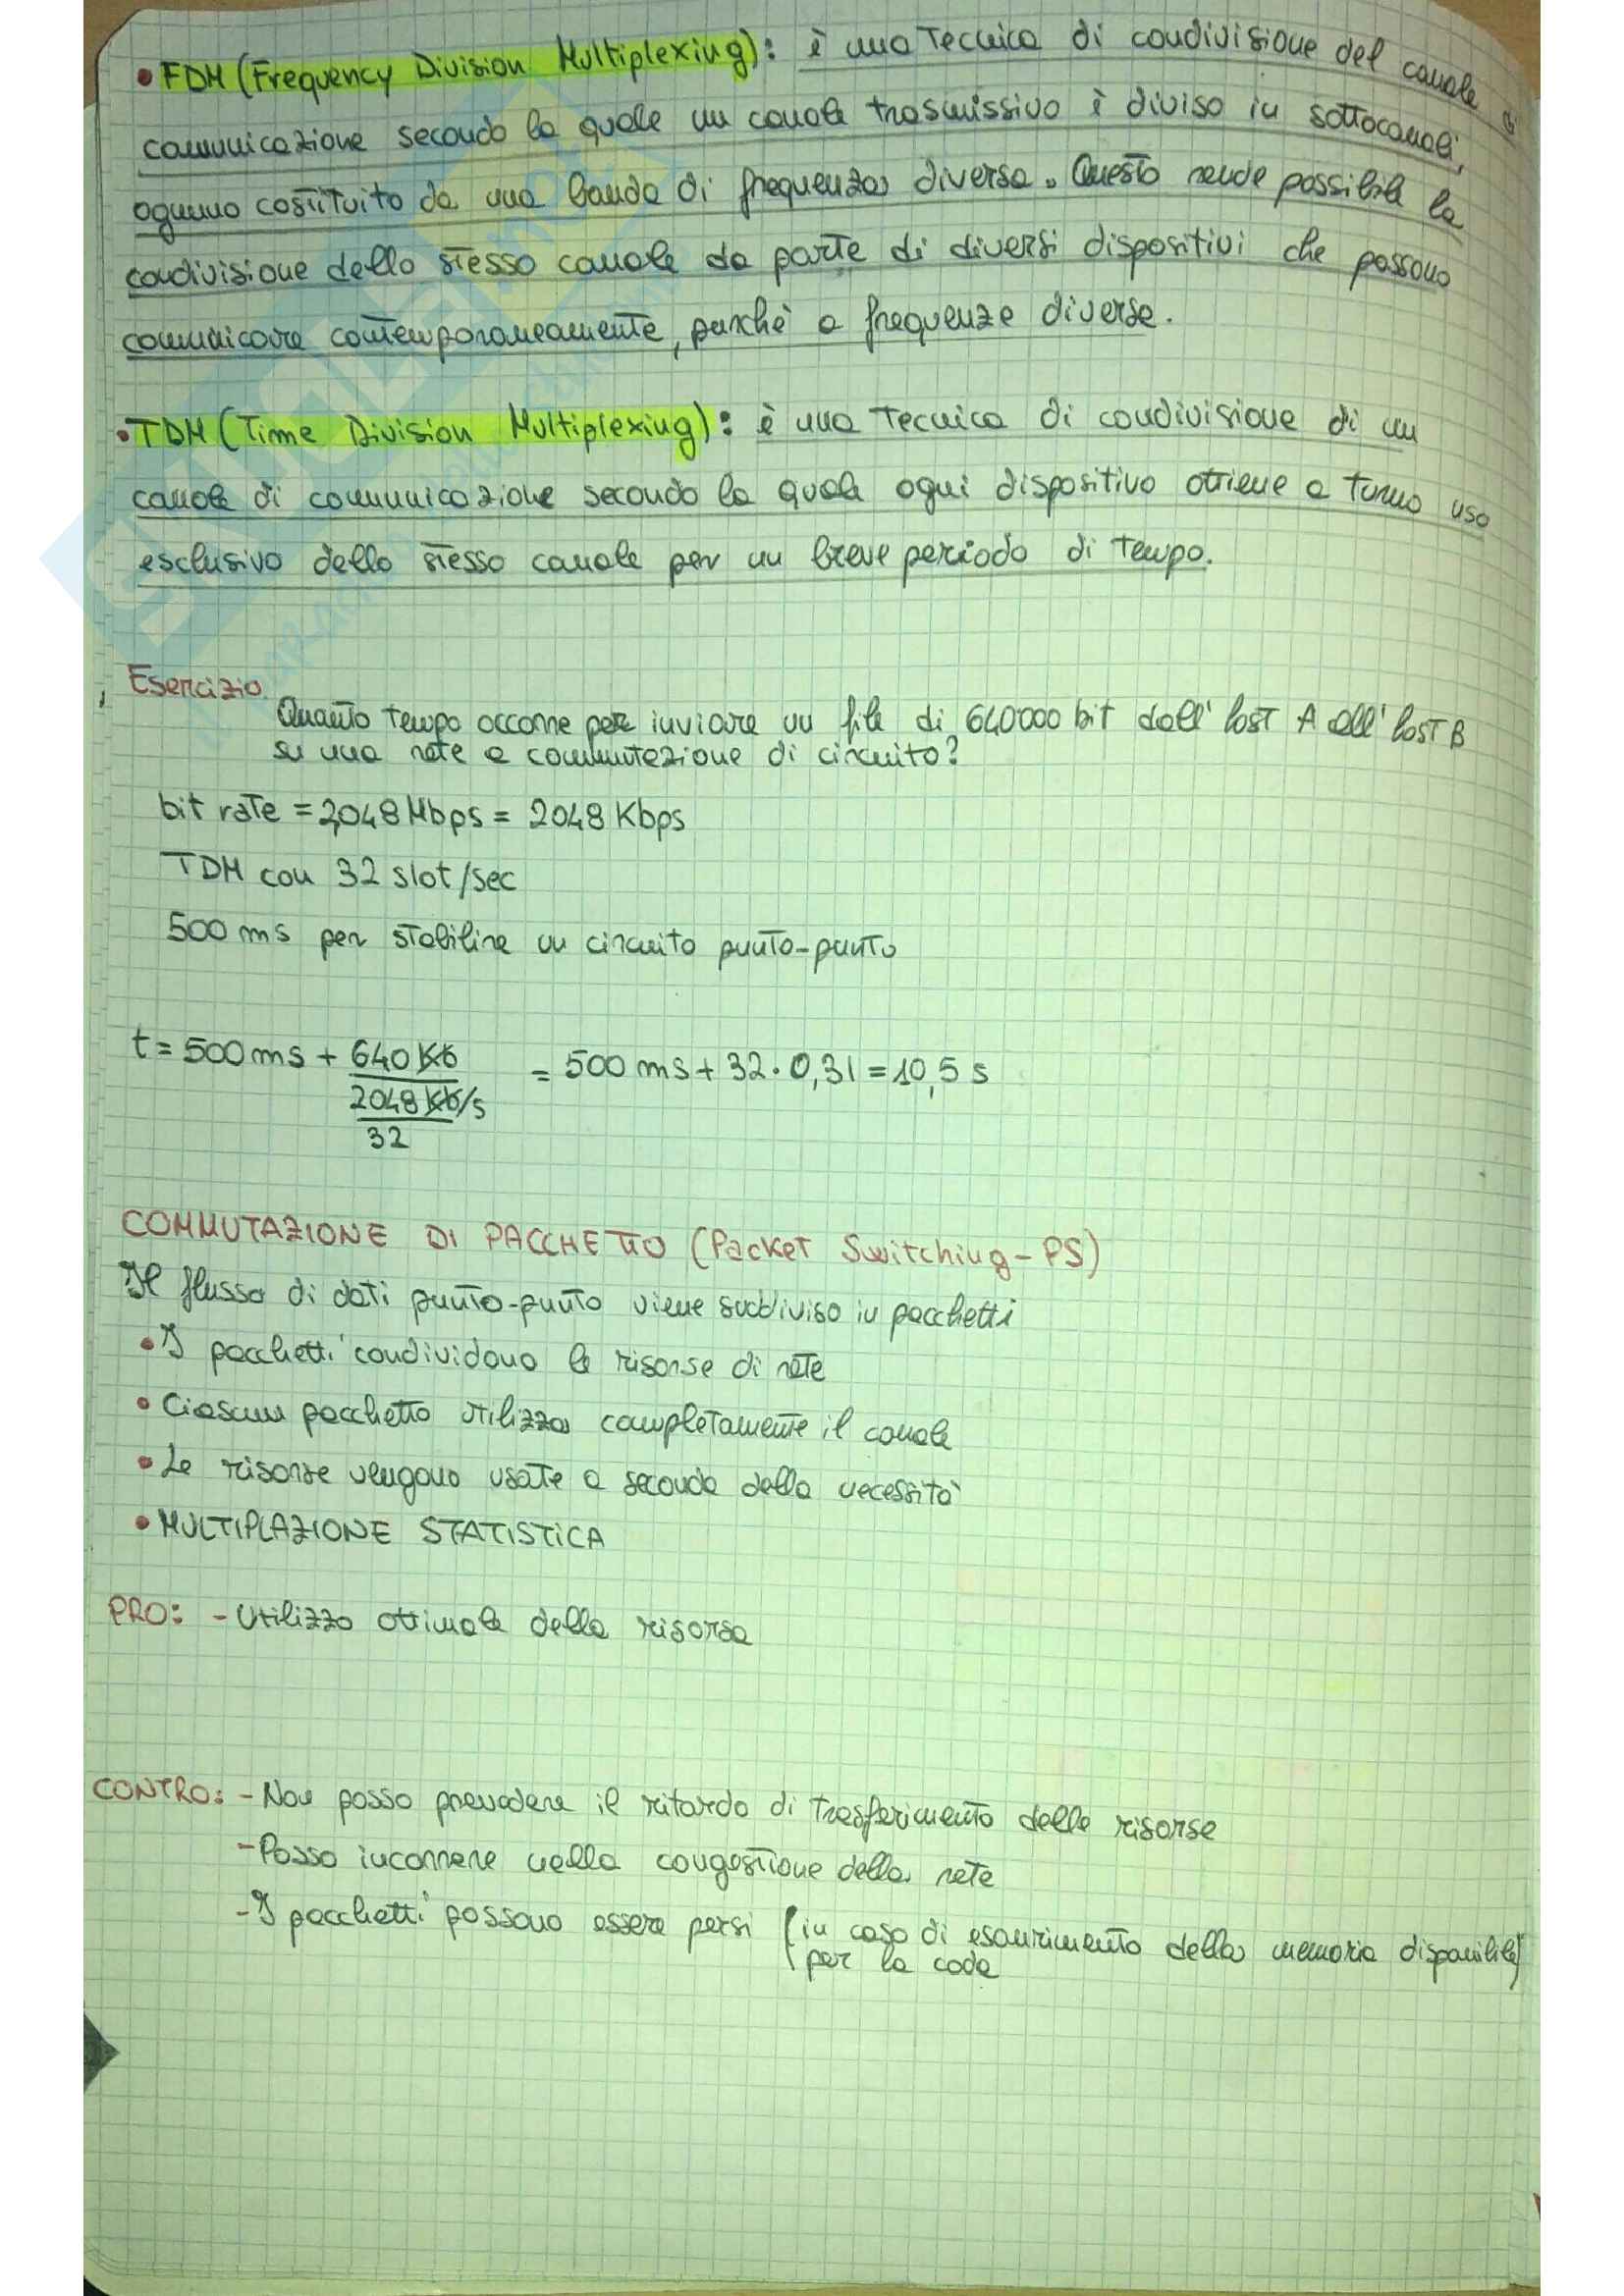 • FDM (Frequency Division Multiplexing): è una tecnica di condivisione del canale di
comunicazione secondo la quale un canale trasmissivo è diviso in sottocanali,
ognuno costituito da una banda di frequenza diversa. Questo rende possibile la
condivisione dello stesso canale da parte di diversi dispositivi che possono
comunicare contemporaneamente, perchè a frequenze diverse.
• TDM (Time Division Multiplexing): è una tecnica di condivisione di un
canale di comunicazione secondo la quale ogni dispositivo ottiene a turno uso
esclusivo dello stesso canale per un breve periodo di tempo.
Esercizio
Quanto tempo occorre per inviare un file di 640000 bit dall'host A all'host B
su una rete a commutazione di circuito?
bit rate = 2,048 Mbps = 2048 Kbps
TDM con 32 slot/sec
500 ms per stabilire un circuito punto-punto
t = 500 ms + 640 Kb = 500 ms + 32 · 0,31 = 10,5 s
2048 Kb/s
32
COMMUTAZIONE DI PACCHETTO (Packet Switching - PS)
Il flusso di dati punto-punto viene suddiviso in pacchetti
• I pacchetti condividono le risorse di rete
• Ciascun pacchetto utilizza completamente il canale
• Le risorse vengono usate a seconda della necessità
• MULTIPLAZIONE STATISTICA
PRO: - Utilizzo ottimale della risorsa
CONTRO: - Non posso prevedere il ritardo di trasferimento delle risorse
- Posso incorrere nella congestione della rete
- I pacchetti possono essere persi (in caso di esaurimento della memoria disponibile)
per la coda